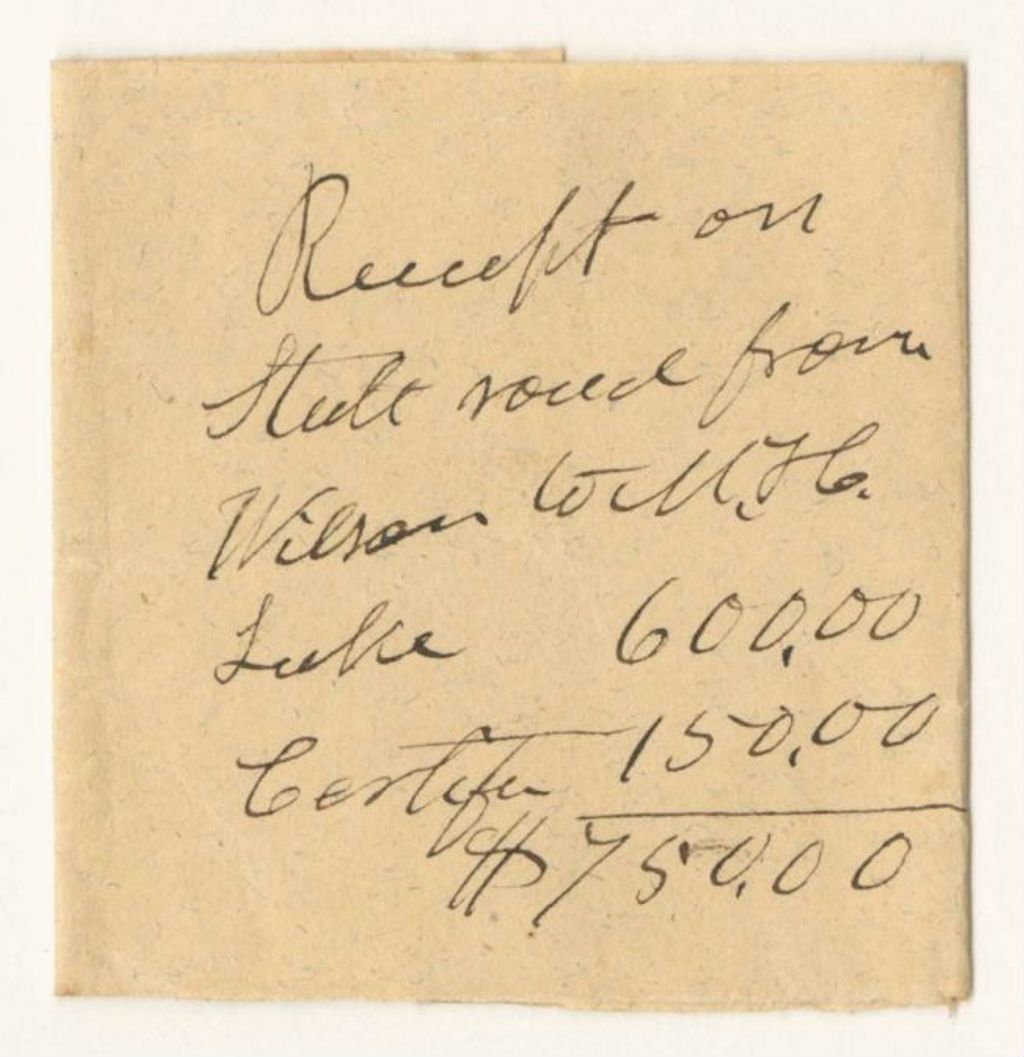 Receipt on
State road from
Wilson to M. H.
Luke 600.00
Certifi 150.00
$750.00